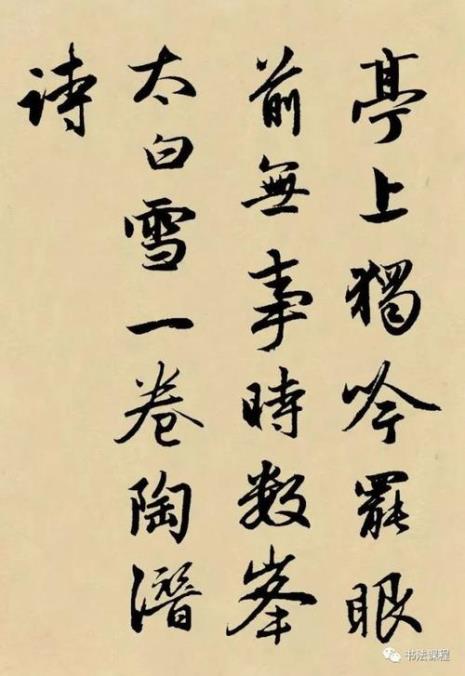 亭上獨吟罷眼
前無事時数峯
太白雪一卷陶潛
詩
书法课程